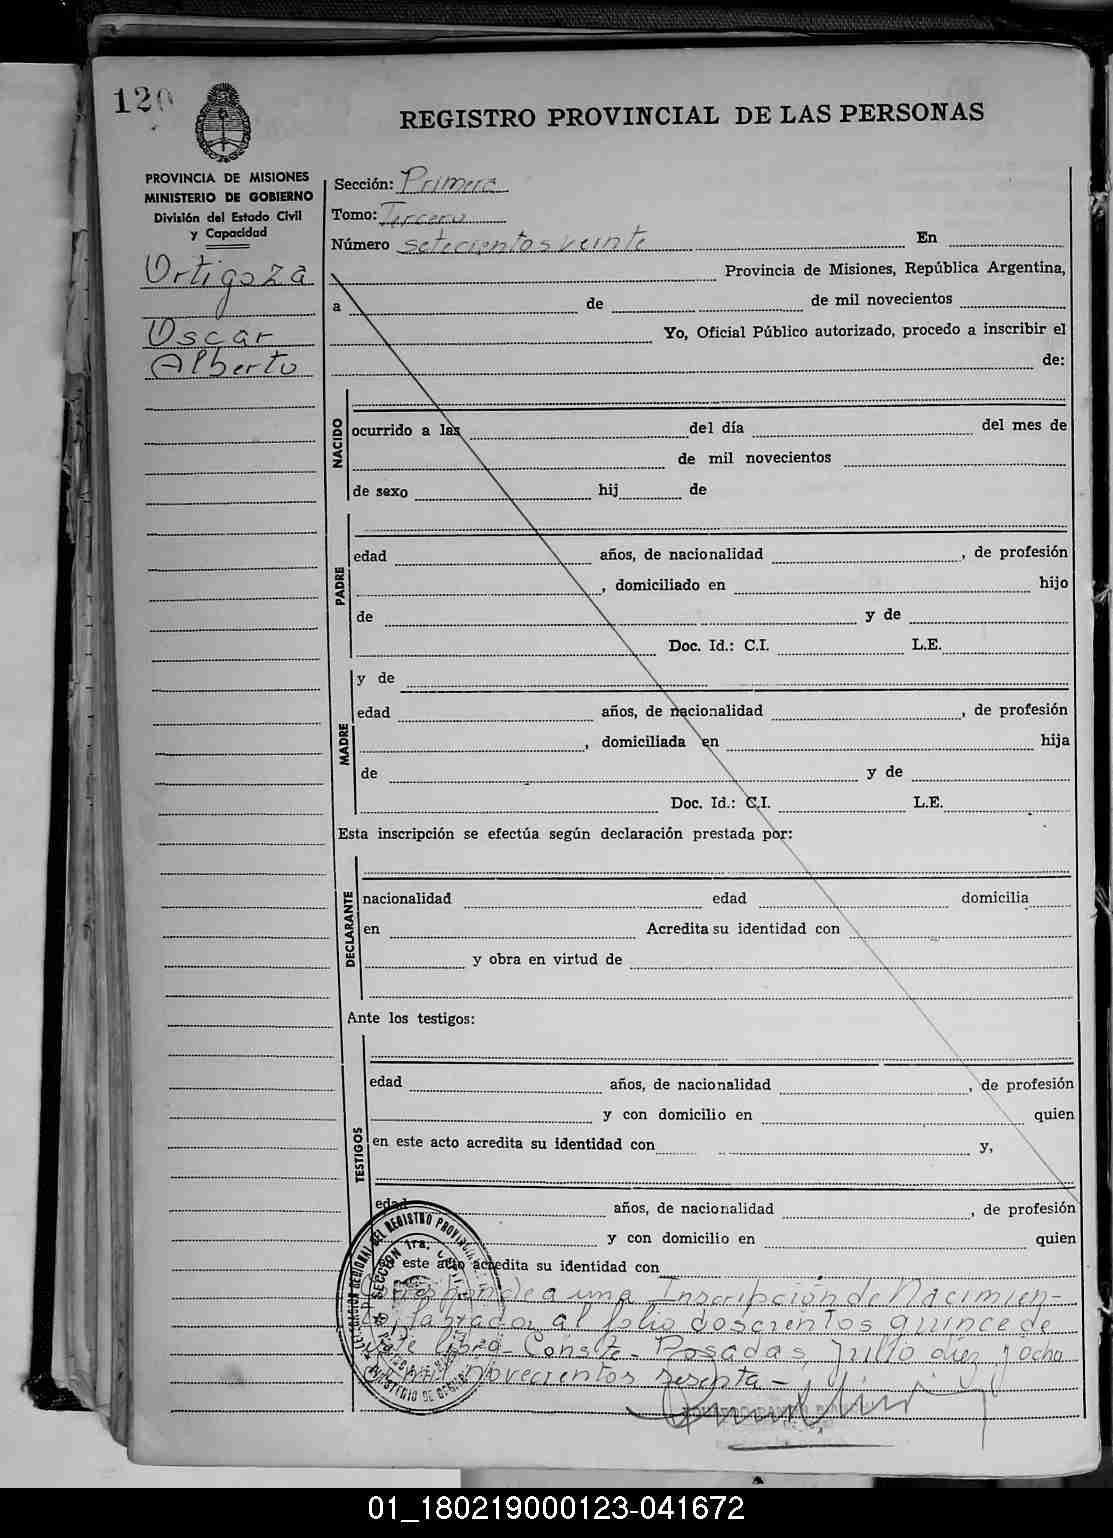 120
REGISTRO PROVINCIAL DE LAS PERSONAS
PROVINCIA DE MISIONES
MINISTERIO DE GOBIERNO
División del Estado Civil
y Capacidad
Ortigoza
Oscar
Alberto
Sección: Primera
Tomo: Tercero
Número setecientos veinte En
Provincia de Misiones, República Argentina,
a de de mil novecientos
Yo, Oficial Público autorizado, procedo a inscribir el
de:
NACIDO
ocurrido a las del día del mes de
de mil novecientos
de sexo hij de
PADRE
edad años, de nacionalidad , de profesión
, domiciliado en hijo
de y de
Doc. Id.: C.I. L.E.
y de
MADRE
edad años, de nacionalidad , de profesión
, domiciliada en hija
de y de
Doc. Id.: C.I. L.E.
Esta inscripción se efectúa según declaración prestada por:
DECLARANTE
nacionalidad edad domicilia
en Acredita su identidad con
y obra en virtud de
Ante los testigos:
TESTIGOS
edad años, de nacionalidad , de profesión
y con domicilio en quien
en este acto acredita su identidad con y,
edad años, de nacionalidad , de profesión
y con domicilio en quien
este acto acredita su identidad con
Corresponde a una Inscripción de Nacimien-
to labrado al folio doscientos quince de
este libro - Conste - Posadas, Julio diez y ocho
de mil novecientos sesenta -
DEL REGISTRO PROVINCIAL
SECCION 1ra.
MINISTERIO DE GOBIERNO
01_180219000123-041672